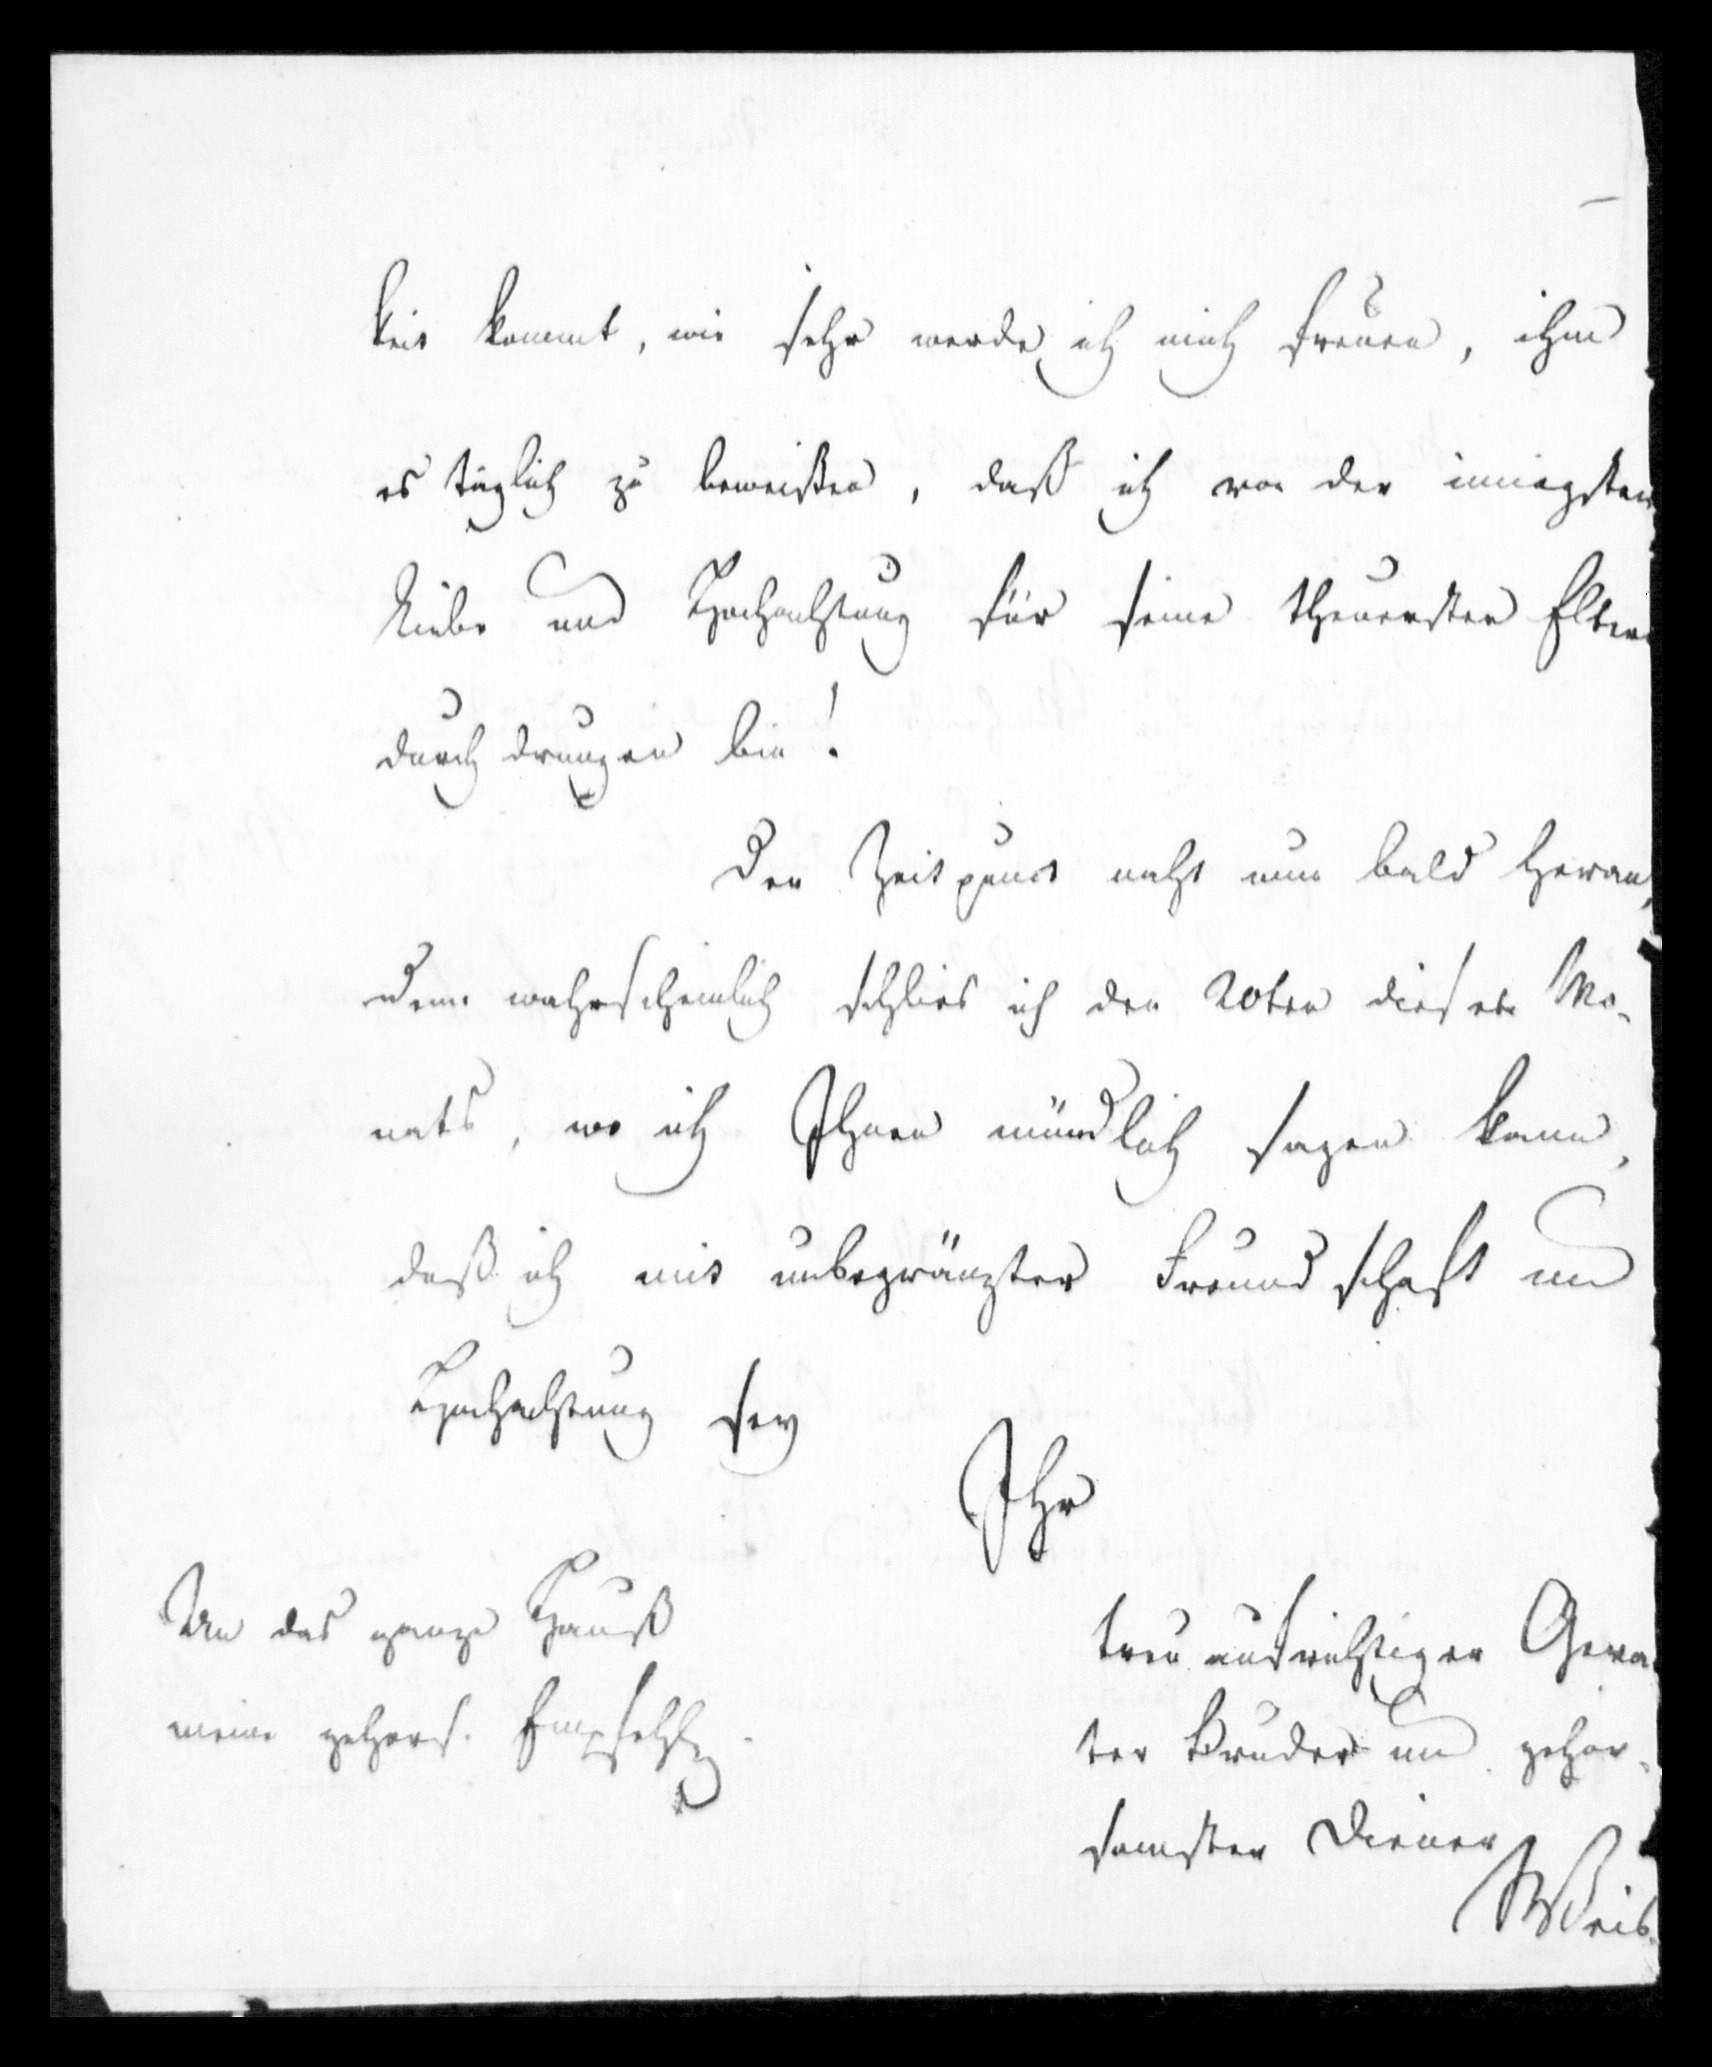 keit kommt, wie sehr werde ich mich freuen, ihm
es täglich zu beweißen, daß ich von der innigsten
Liebe und Hochachtung für seine theuersten Eltern
durchdrungen bin!
Der Zeitpunct naht nun bald heran,
denn wahrscheinlich schlies ich den 20ten dieses Mo-
nats, wo ich Ihnen mündlich sagen kann,
daß ich mit unbegränzter Freundschaft und
Hochachtung sey
Ihr
treu aufrichtiger Geva
ter Bruder und gehor-
samster Diener
Weis
An das ganze Hauß
meine gehors. Empfehlg.